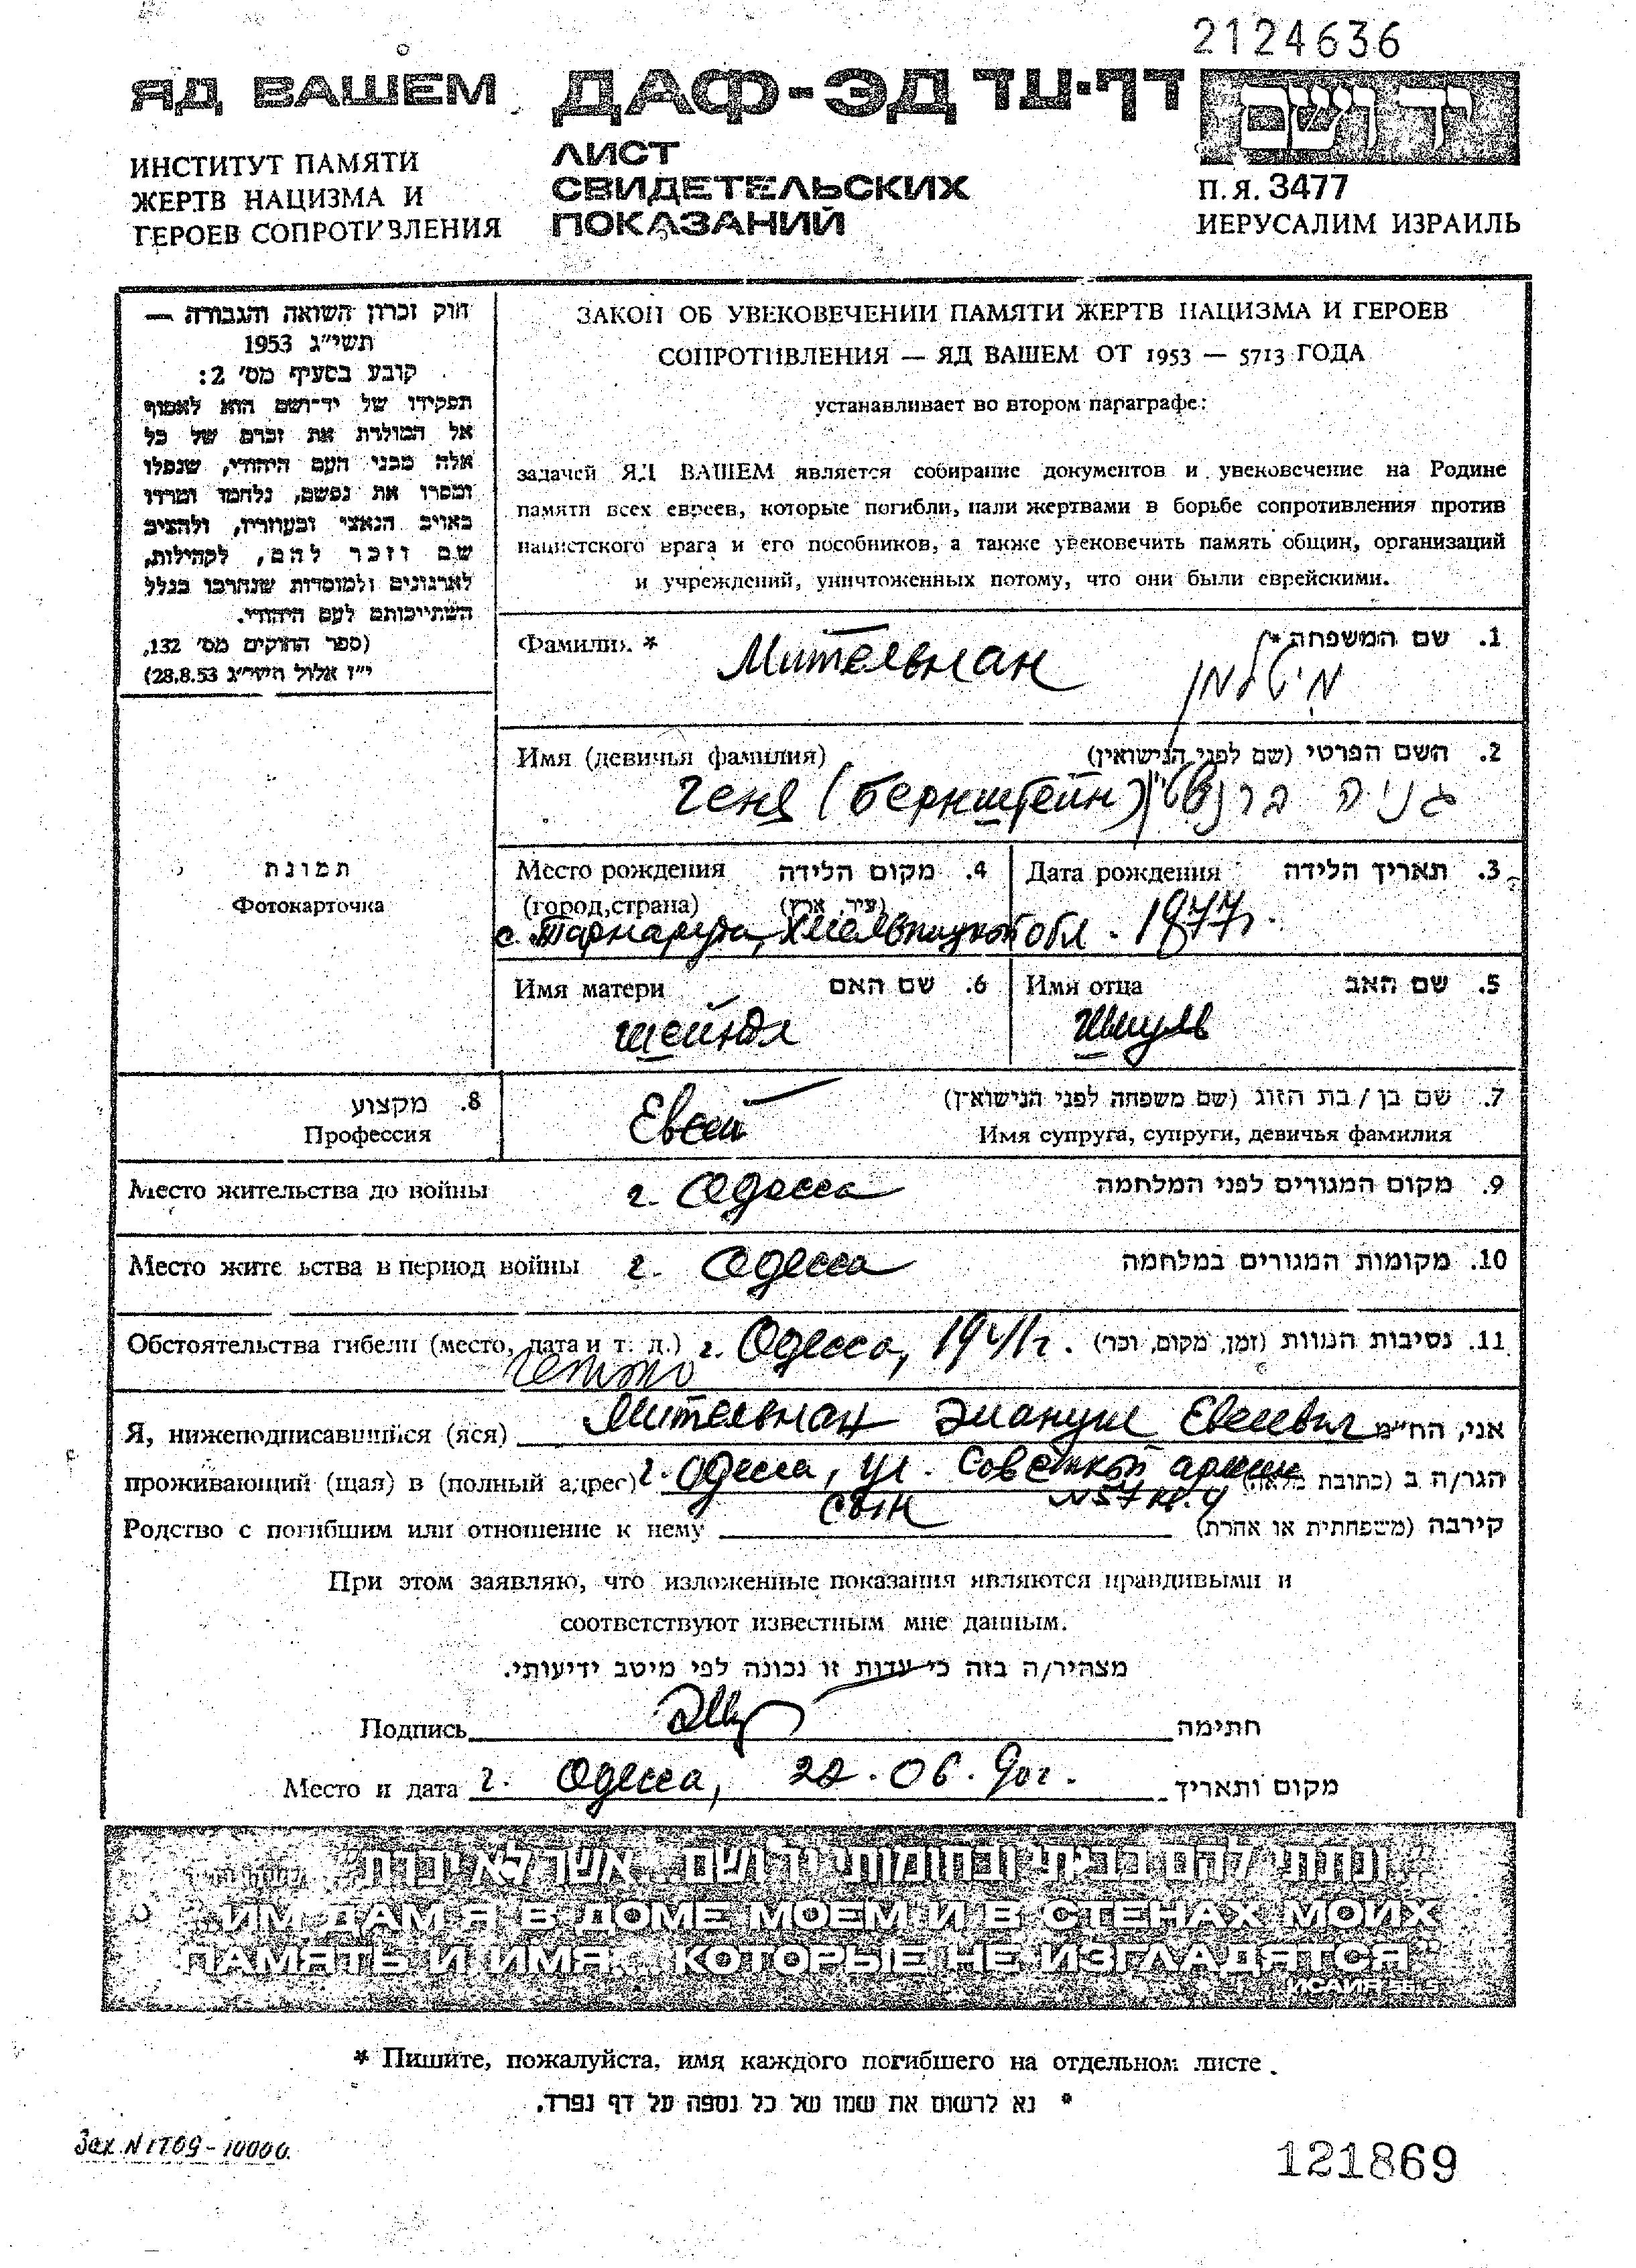 2124636
ЯД ВАШЕМ
ДАФ-ЭД דף-עד
יד ושם
ИНСТИТУТ ПАМЯТИ
ЖЕРТВ НАЦИЗМА И
ГЕРОЕВ СОПРОТИВЛЕНИЯ
ЛИСТ
СВИДЕТЕЛЬСКИХ
ПОКАЗАНИЙ
П.Я. 3477
ИЕРУСАЛИМ ИЗРАИЛЬ
חוק זכרון השואה והגבורה —
תשי״ג 1953
קובע בסעיף מס׳ 2:
תפקידו של יד־ושם הוא לאסוף
אל המולדת את זכרם של כל
אלה מבני העם היהודי, שנפלו
ומסרו את נפשם, נלחמו ומרדו
באויב הנאצי ובעוזריו, ולהציב
שם וזכר להם, לקהילות,
לארגונים ולמוסדות שנחרבו בגלל
השתייכותם לעם היהודי.
(ספר החוקים מס׳ 132,
י״ז אלול תשי״ג 28.8.53)
ЗАКОН ОБ УВЕКОВЕЧЕНИИ ПАМЯТИ ЖЕРТВ НАЦИЗМА И ГЕРОЕВ
СОПРОТИВЛЕНИЯ — ЯД ВАШЕМ ОТ 1953 — 5713 ГОДА
устанавливает во втором параграфе:
задачей ЯД ВАШЕМ является собирание документов и увековечение на Родине
памяти всех евреев, которые погибли, пали жертвами в борьбе сопротивления против
нацистского врага и его пособников, а также увековечить память общин, организаций
и учреждений, уничтоженных потому, что они были еврейскими.
Фамилия * Мительман 1. שם המשפחה*
מיטלמן
Имя (девичья фамилия) 2. השם הפרטי (שם לפני הנישואין)
Геня (Бернштейн) גניה ברנשטיין
Место рождения 4. מקום הלידה
(город,страна) (עיר, ארץ)
Дата рождения 3. תאריך הלידה
с. Тарнаруда, Хмельницкой обл. 1877г.
Имя матери 6. שם האם
Шейндя
Имя отца 5. שם האב
Шмуль
תמונת
Фотокарточка
8. מקצוע
Профессия
7. שם בן / בת הזוג (שם משפחה לפני הנישואין)
Евсей Имя супруга, супруги, девичья фамилия
Место жительства до войны г. Одесса 9. מקום המגורים לפני המלחמה
Место жите ьства в период войны г. Одесса 10. מקומות המגורים במלחמה
Обстоятельства гибели (место, дата и т. д.) г. Одесса, 1941г. 11. נסיבות המוות (זמן, מקום, וכר׳)
гетто
Я, нижеподписавшийся (яся) Мительман Эмануил Евсеевич אני, הח״מ
проживающий (щая) в (полный адрес) г. Одесса, ул. Советской армии הגר/ה ב (כתובת מלאה)
N 57 кв. 4
Родство с погибшим или отношение к нему сын קירבה (משפחתית או אחרת)
При этом заявляю, что изложенные показания являются правдивыми и
соответствуют известным мне данным.
מצהיר/ה בזה כי עדות זו נכונה לפי מיטב ידיעותי.
Подпись חתימה
Место и дата г. Одесса, 22.06.90г. מקום ותאריך
״ונתתי להם בביתי ובחומותי יד ושם... אשר לא יכרת״
"ИМ ДАМ Я В ДОМЕ МОЕМ И В СТЕНАХ МОИХ
ПАМЯТЬ И ИМЯ... КОТОРЫЕ НЕ ИЗГЛАДЯТСЯ"
ИСАИЯ 56,5
* Пишите, пожалуйста, имя каждого погибшего на отдельном листе.
* נא לרשום את שמו של כל נספה על דף נפרד.
Зак. N 1709-10000.
121869